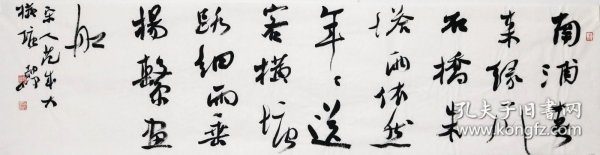 南浦春
來緑一川
石橋朱
塔雨依然
年〻送
客横塘
路細雨垂
楊繫畫
船
宋人范成大
横塘
孔夫子旧书网
www.kongfz.com